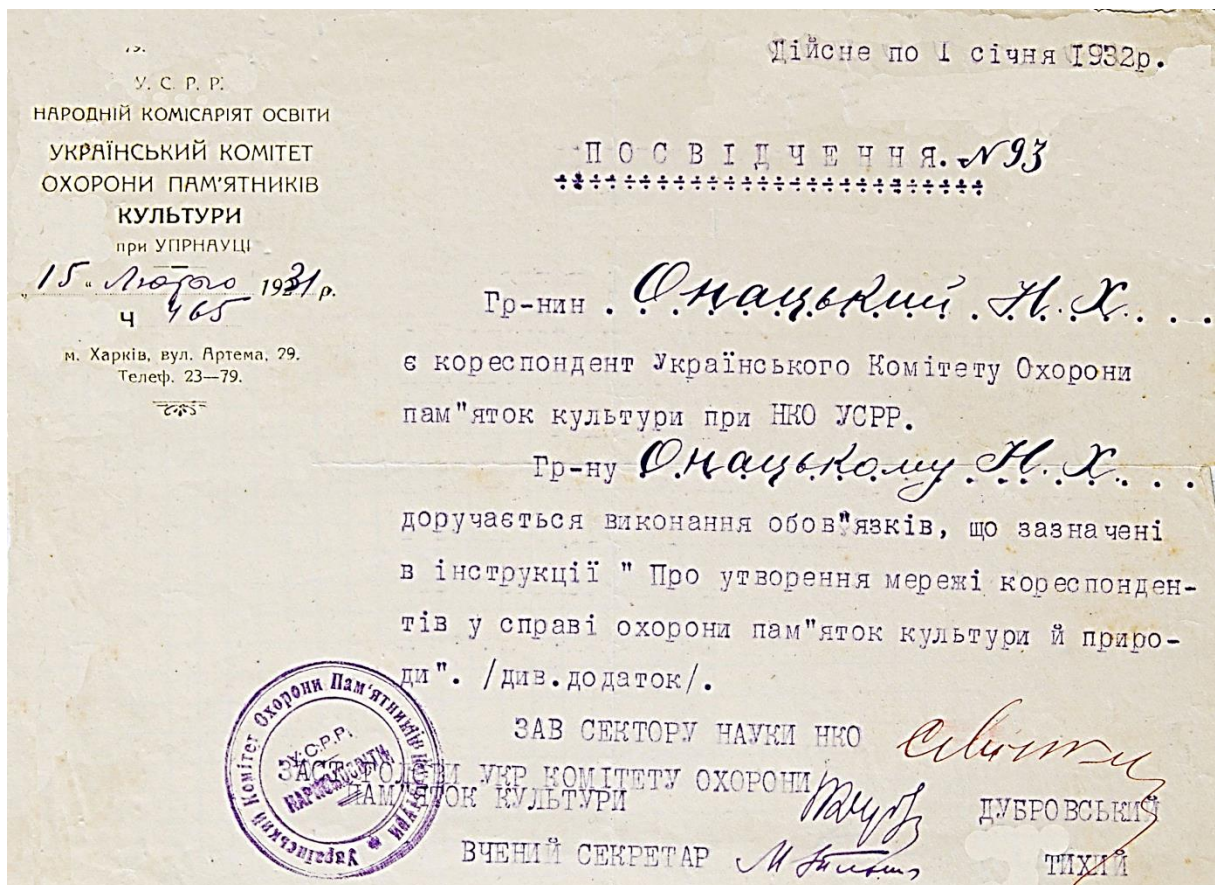 У. С. Р. Р.
НАРОДНІЙ КОМІСАРІЯТ ОСВІТИ
УКРАЇНСЬКИЙ КОМІТЕТ
ОХОРОНИ ПАМ'ЯТНИКІВ
КУЛЬТУРИ
при УПРНАУЦІ
„15" Лютого 1931 р.
Ч 465
м. Харків, вул. Артема, 29.
Телеф. 23—79.
Дійсне по I січня I932р.
ПОСВІДЧЕННЯ. № 93
Гр-нин Онацький Н. Х.
є кореспондент Українського Комітету Охорони
пам"яток культури при НКО УСРР.
Гр-ну Онацькому Н. Х.
доручається виконання обов"язків, що зазначені
в інструкції " Про утворення мережі кореспонден-
тів у справі охорони пам"яток культури й приро-
ди". /див.додаток/.
ЗАВ СЕКТОРУ НАУКИ НКО
ЗАСТ ГОЛОВИ УКР КОМІТЕТУ ОХОРОНИ
ПАМ"ЯТОК КУЛЬТУРИ ДУБРОВСЬКИЙ
ВЧЕНИЙ СЕКРЕТАР ТИХИЙ
Український Комітет Охорони Пам'ятників Культури
У.С.Р.Р.
НАРКОМОСВІТИ